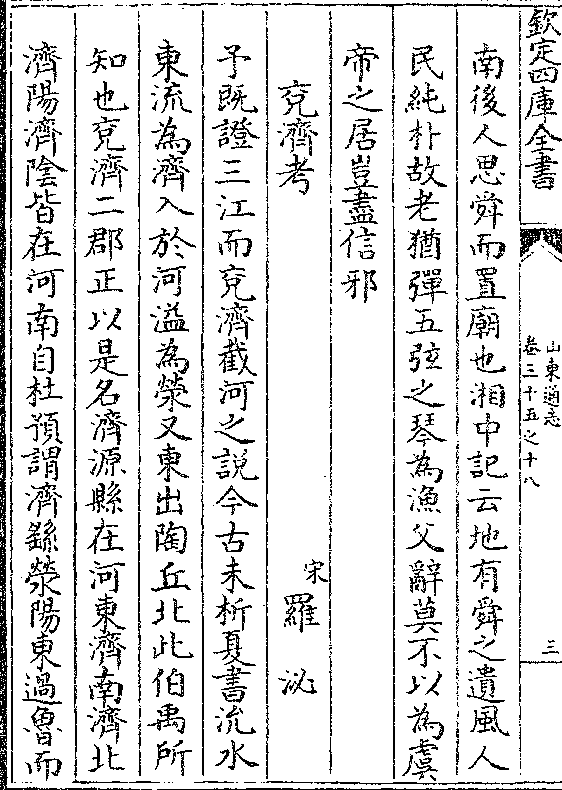 欽定四庫全書
山東通志
卷三十五之十八
三
南後人思舜而置廟也湘中記云地有舜之遺風人
民純朴故老猶彈五弦之琴為漁父辭莫不以為虞
帝之居豈盡信邪
兗濟考
宋羅泌
予既證三江而兗濟截河之說今古未析夏書沇水
東流為濟入於河溢為滎又東出陶丘北此伯禹所
知也兗濟二郡正以是名濟源縣在河東濟南濟北
濟陽濟陰皆在河南自杜預謂濟繇滎陽東過魯而